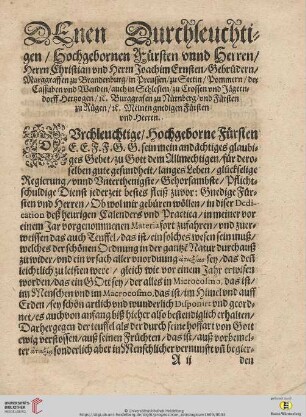 DEnen Durchleuchti-
gen / Hochgebornen Fürsten vnnd Herren /
Herrn Christian vnd Herrn Joachim Ernsten / Gebrüdern /
Marggraffen zu Brandenburg / in Preussen / zu Stettin / Pommern / der
Cassuben vnd Wenden / auch in Schlesien / zu Crossen vnd Jägern-
dorff Hertzogen / ꝛc. Burggrafen zu Nürnberg / vnd Fürsten
zu Rügen / ꝛc. Meinen gnedigen Fürsten
vnd Herren.
DUrchleuchtige / Hochgeborne Fürsten
E. E. F. F. G. G. sein mein andächtiges glaubi-
ges Gebet / zu Gott dem Allmechtigen / für dero-
selben gute gesundheit / langes Leben / glückselige
Regierung / vnnd Vnterthenigste / Gehorsambste / Pflicht-
schuldige Dienst jederzeit bestes fleiß zuvor: Gnedige Für-
sten vnd Herren / Ob wol mir gebüren wöllen / in diser Dedi-
cation deß heurigen Calenders vnd Practica / in meiner vor
einem Jar vorgenommenen Materia fort zufahren / vnd zuer-
weissen das auch Teuffel / das ist / ein solches wesen sein muß /
welches der schönen Ordnung in der gantze Natur durchauß
zu wider / vnd ein vrsach aller vnordnung sey / das deß
leichtlich zu leisten were / gleich wie vor einem Jahr erwisen
worden / das ein GOtt sey / der alles in Microcosmo, das ist /
im Menschen vnd im Macrocosmo, das ist / im Himel vñ auff
Erden / so schön artlich vnd wunderlich disponir vnd geord-
net / es auch von anfang biß hieher also bestendiglich erhalten /
Darhergegen der teuffel als der durch seine hoffart von Gott
ewig verstossen / auß seinen Früchten / das ist / auß vorbemel-
ter sonderlich aber in Menschlicher vernunft vñ begier-
A ij den